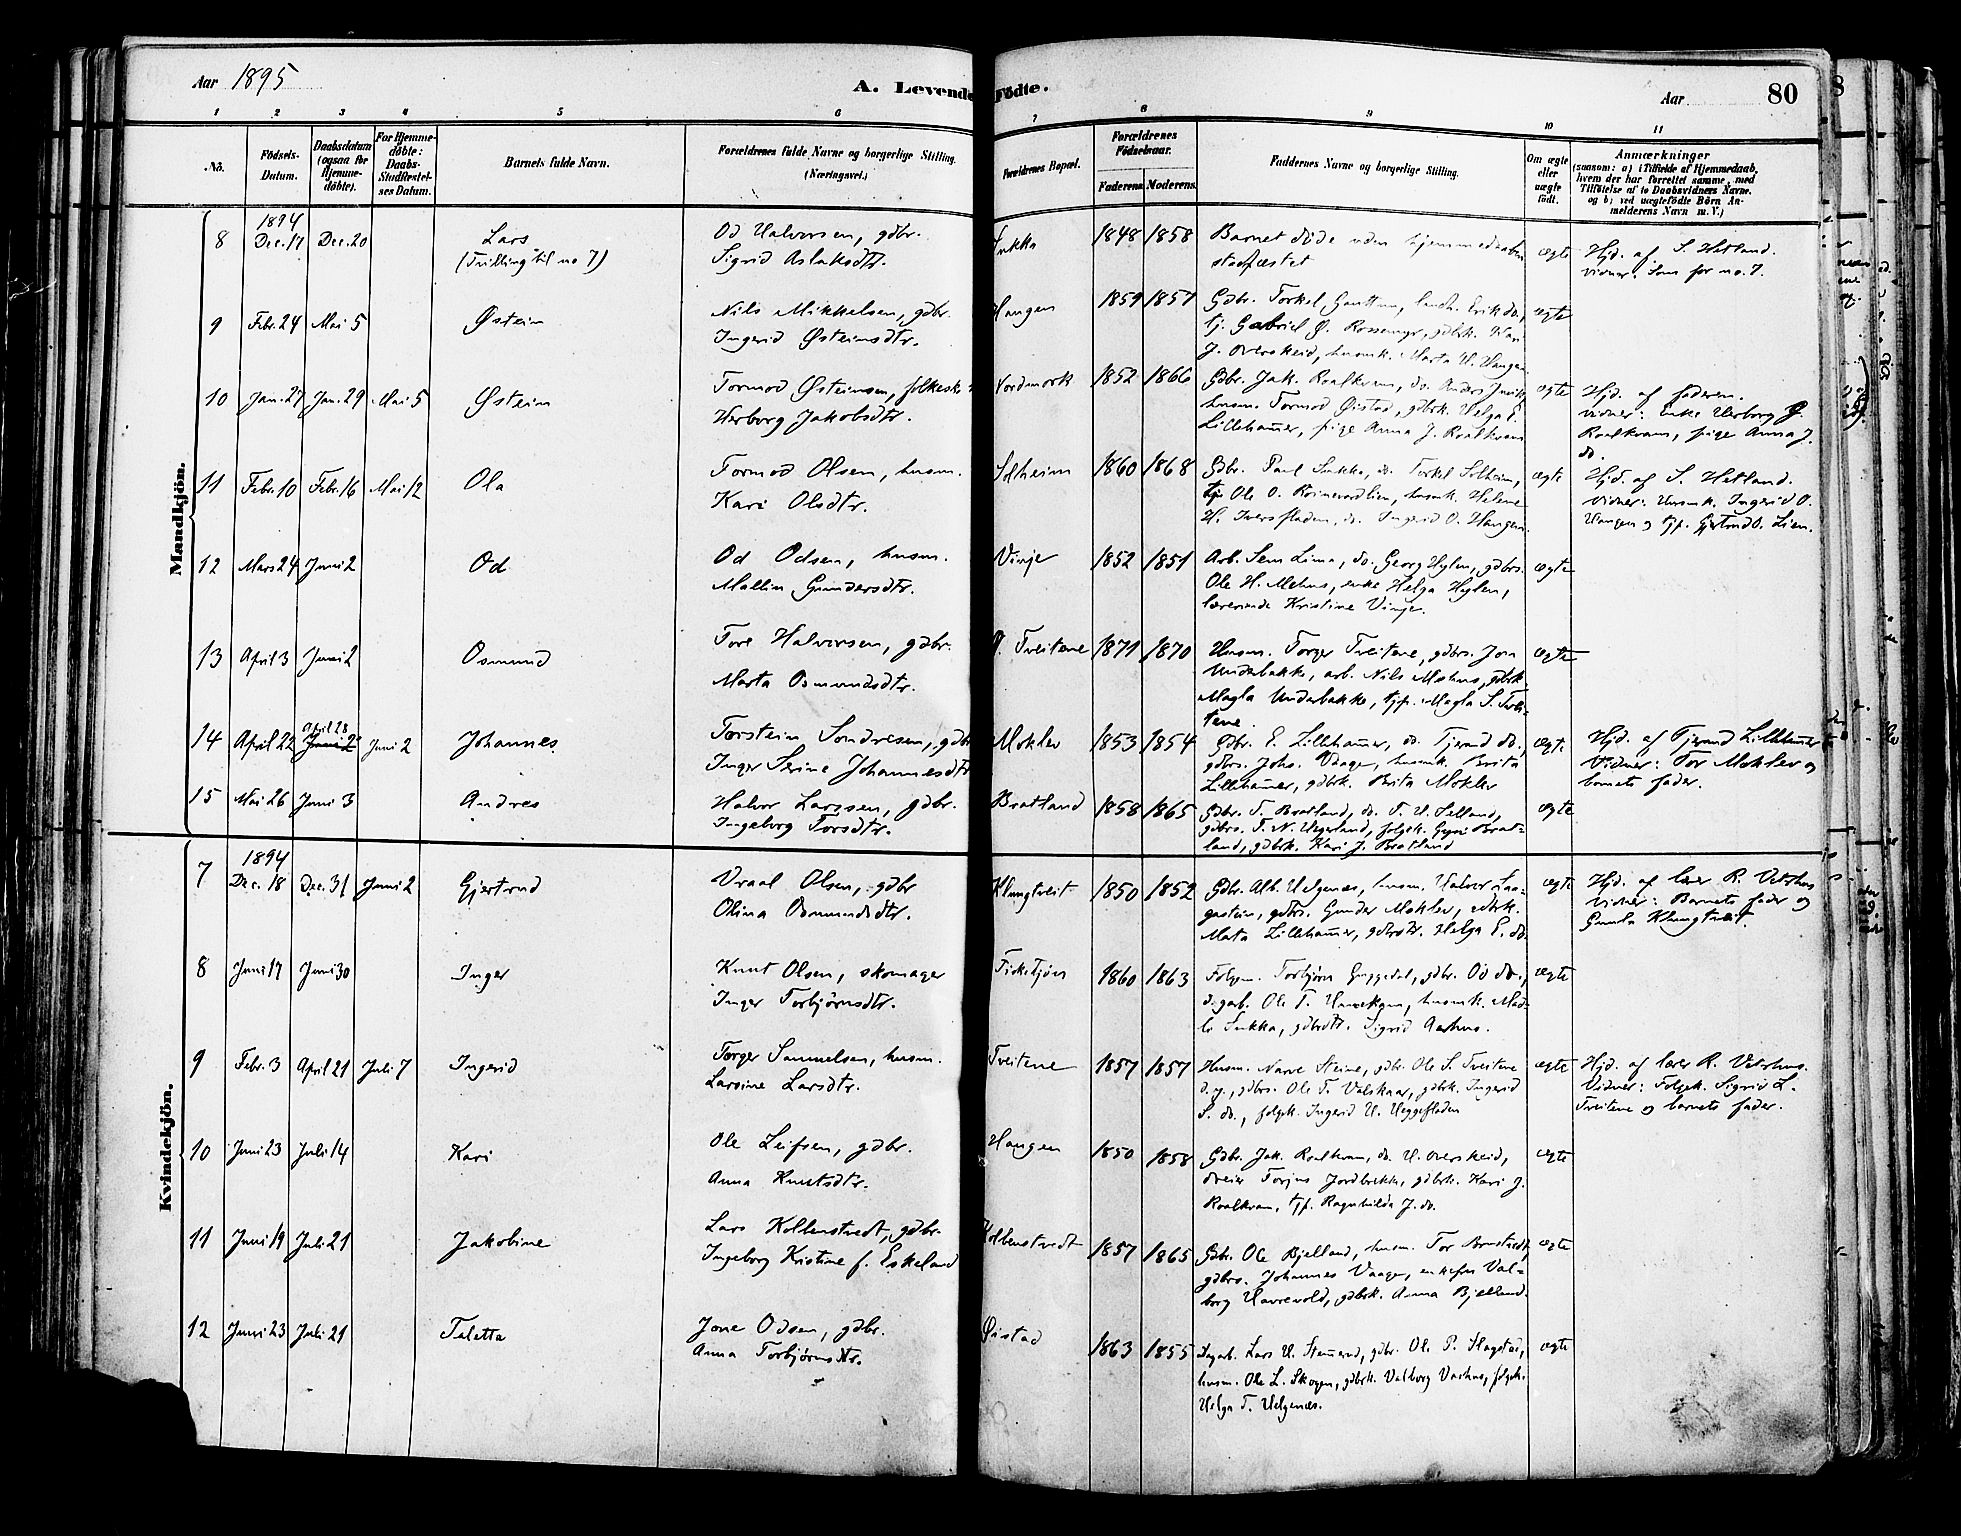 Aar 1895
A. Levende Fødte.
Aar
80
1 2 3 4 5 6 7 8 9 10 11
No.
Fødsels-
Datum.
Daabsdatum
(ogsaa for
Hjemme-
døbte).
For Hjemme-
døbte:
Daabs-
Stadfæstel-
ses Datum.
Barnets fulde Navn.
Forældrenes fulde Navne og borgerlige Stilling.
(Næringsvei.)
Forældrenes Bopæl.
Forældrenes
Fødselsaar.
Faderens. Moderens.
Faddernes Navne og borgerlige Stilling.
Om ægte
eller
uægte
født.
Anmærkninger
(saasom: a) i Tilfælde af Hjemmedaab,
hvem der har forrettet samme, med
Tilføielse af to Daabsvidners Navne.
og b) ved uægtefødte Børn An-
melderens Navn m. V.)
Mandkjøn.
8 1894 Dec. 17 Dec. 20 Lars
(Trilling til no 7)
Od Halvorsen, gdbr.
Sigrid Aslaksdtr.
Sukka 1848 1858
Barnet døde uden hjemmedaaben
stadfæstet
ægte
Hjd. af S. Hetland.
Vidner: Som for no. 7.
9 Febr. 24 Mai 5 Østein
Nils Mikkelsen, gdbr.
Ingerid Østeinsdtr.
Haugen 1859 1857
Gdbr. Torkel Erik do.,
tj. Gabriel Ø. Rossemyr, gdbrk.
J. Overskeid, husmk. Marta H. Haugen
ægte
10 Jan. 27 Jan. 29 Mai 5 Østein
Tormod Østeinsen, folkesk.
Herborg Jakobsdtr.
Nordmork 1852 1866
Gdbr. Jak. Roalkvam, do. Anders
husm. Tormod Øistad, gdbrk. Helga E.
Lillehammer, pige Anna J. Roalkvam
ægte
Hjd. af faderen.
Vidner: Enke Herborg
Roalkvam, pige Anna J.
do.
11 Febr. 10 Febr. 16 Mai 12 Ola
Tormod Olsen, husm.
Kari Olsdtr.
Solheim 1860 1868
Gdbr. Paul Sukka, do. Torkel Solheim,
Ole O. husmk. Helene
H. Iversfladen, do. Ingerid O. Haugen
ægte
Hjd. af S. Hetland.
Vidner: Husmk. Ingerid O.
Haugen og tjp. Gjertrud O. Lien.
12 Mars 24 Juni 2 Od
Od Odsen, husm.
Mallin Gundersdtr.
Vinje 1852 1851
Arb. Sem Lima, do. Georg Hylen, gdbrs.
Ole H. Mehus, enke Helga Hylen,
lærerinde Kristine Vinje.
ægte
13 April 3 Juni 2 Osmund
Tore Halvorsen, gdbr.
Marta Osmundsdtr.
Tveitene 1871 1870
Husm. Torger Tveitene, gdbrs. Jon
Underbakke, arb. Nils Mehus, gdbrk.
Magla Underbakke, tjp. Magla S. Tvei-
tene.
ægte
14 April 22 April 28 Juni 2 Juni 2 Johannes
Torstein Sondresen, gdbr.
Inger Serine Johannesdtr.
Moklev 1853 1854
Gdbr. E. Lillehammer, do. Tjerand do.,
gdbrs. Johs. Vaage, husmk. Brita
Lillehammer, gdbrk. Brita Moklev
ægte
Hjd. af Tjerand Lillehammer
Vidner: Tor Moklev og
barnets fader.
15 Mai 26 Juni 3 Andres
Halvor Larssen, gdbr.
Ingeborg Torsdtr.
Bratland 1858 1865
Gdbr. T. Bratland, do. T. H. Selland,
gdbrs. T. N. Hegerland, folgek. Guri Brat-
land, gdbrk. Kari J. Bratland
ægte
Kvindekjøn.
7 1894 Dec. 18 Dec. 31 Juni 2 Gjertrud
Vraal Olsen, gdbr
Olina Osmundsdtr.
Klungtveit 1850 1852
Gdbr. Alb. Helgenæs, husm. Halvor Lau-
gastein, gdbrs. Gunder Moklev, gdbrk.
Marta Lillehammer, gdbrdtr. Helga E. do.
ægte
Hjd. af lærer R. Vetrhus
Vidner: Barnets fader og
Gunla Klungtveit.
8 Juni 17 Juni 30 Inger
Knut Olsen, skomager
Inger Torbjørnsdtr.
Fisketjøn 1860 1863
Folgem. Torbjørn Guggedal, gdbr. Od do.,
dagarb. Ole T. husmk. Mad-
le Sukka, gdbrdtr. Sigrid Aarhus.
ægte
9 Febr. 3 April 21 Juli 7 Ingerid
Torger Samuelsen, husm.
Larsine Larsdtr.
Tveitene 1857 1857
Husm. Narve Steine, gdbr. Ole S. Tveitene
d. y., gdbrs. Ole T. Valskaar, gdbrk. Ingerid
S. do., folgek. Ingerid H. Heggefladen
ægte
Hjd. af lærer R. Vetrhus.
Vidner: Folgek. Sigrid L.
Tveitene og barnets fader.
10 Juni 23 Juli 14 Kari
Ole Leifsen, gdbr.
Anna Knutsdtr.
Haugen 1850 1858
Gdbr. Jak. Roalkvam, do. H. Overskeid,
dreier Torjus Jordbrekk, gdbrk. Kari J.
Roalkvam, tjp. Ragnhilda J. do.
ægte
11 Juni 19 Juli 21 Jakobine
Lars Kolbenstvedt, gdbr.
Ingeborg Kristine f. Eskeland
Kolbenstvedt 1857 1865
Gdbr. Ole Bjelland, husm. Tor
gdbrs. Johannes Vaage, enkefru Val-
borg Havrevold, gdbrk. Anna Bjelland.
ægte
12 Juni 23 Juli 21 Teletta
Jone Odsen, gdbr.
Anna Torbjørnsdtr.
Øistad 1863 1855
Dagarb. Lars H. gdbr. Ole P. Hagstad,
husm. Ole L. Skogen, gdbrk. Valborg Vashus, folgek.
Helga T. Helgenæs.
ægte